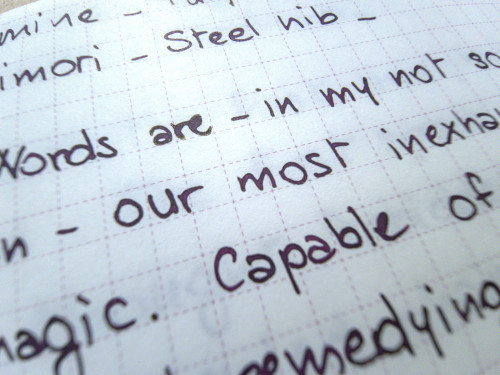 mine -
imori - Steel nib -
Words are - in my not so
n - our most inexhau
magic. Capable of
remedying